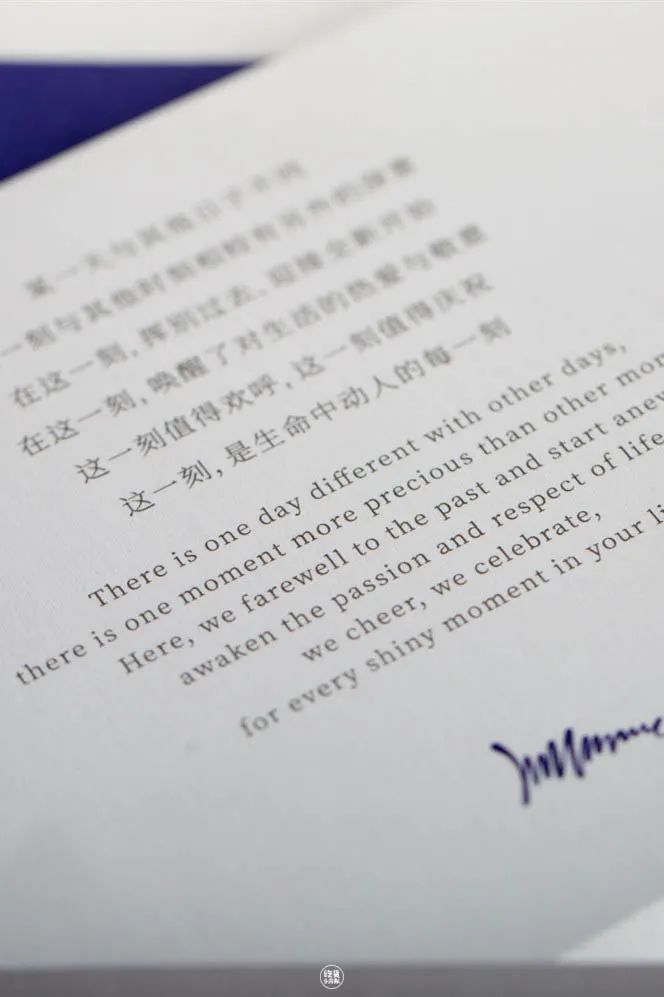 某一天与其他日子不同
一刻与其他时刻相较有另外的深意
在这一刻，挥别过去、迎接全新开始
在这一刻，唤醒了对生活的热爱与敬意
这一刻值得欢呼，这一刻值得庆祝
这一刻，是生命中动人的每一刻
There is one day different with other days,
there is one moment more precious than other mom
Here, we farewell to the past and start anew
awaken the passion and respect of life
we cheer, we celebrate,
for every shiny moment in your li